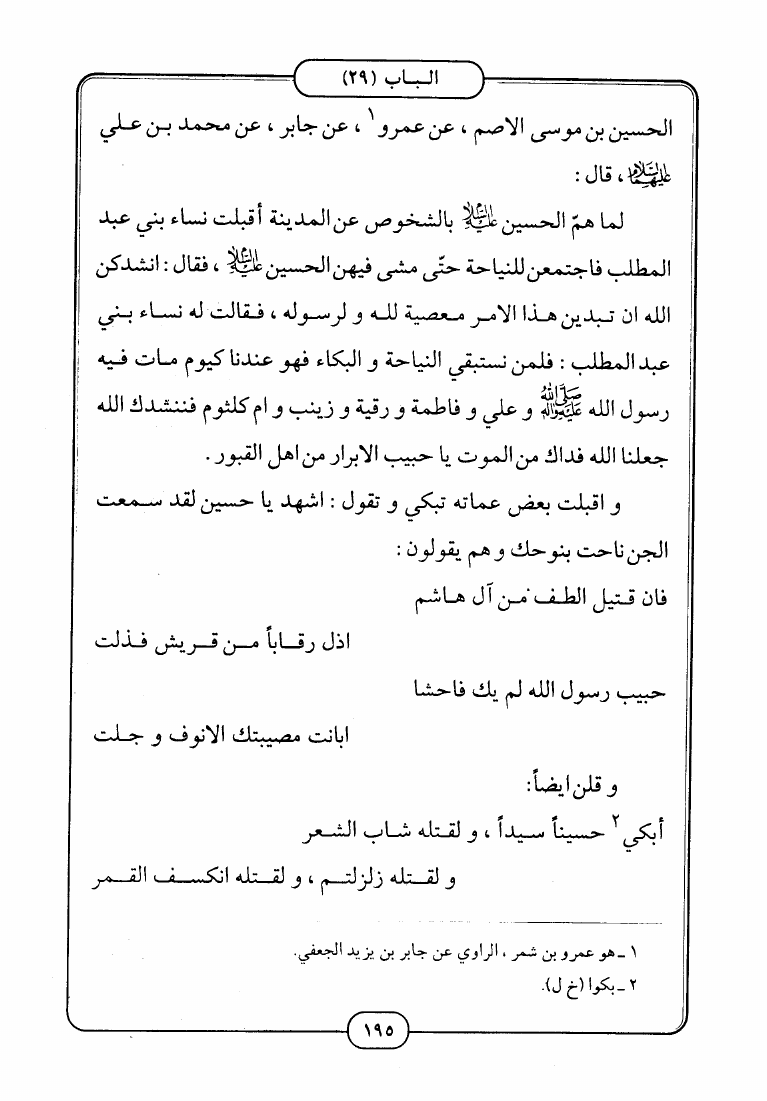 الـبـاب (٢٩)
الحسين بن موسى الاصم ، عن عمرو١ ، عن جابر ، عن محمد بـن عـلي
عليهما السلام ، قال :
لما همّ الحسين عليه السلام بالشخوص عن المدينة أقبلت نساء بني عبد
المطلب فاجتمعن للنياحة حتّى مشى فيهن الحسين عليه السلام ، فقال : انشدكن
الله ان تـبدين هـذا الامـر مـعصية للـه و لرسـوله ، فـقالت له نسـاء بـني
عبد المطلب : فلمن نستبقي النياحة و البكاء فهو عندنا كيوم مـات فـيه
رسول الله صلى الله عليه وآله و علي و فاطمة و رقية و زينب و ام كلثوم فننشدك الله
جعلنا الله فداك من الموت يا حبيب الابرار من اهل القبور .
و اقبلت بعض عماته تبكي و تقول : اشهد يا حسين لقد سـمعت
الجن ناحت بنوحك و هم يقولون :
فان قـتيل الطـف مـن آل هـاشم
اذل رقـابـاً مـن قـريش فـذلت
حبيب رسول الله لم يك فاحشا
ابانت مصيبتك الانوف و جـلت
و قلن ايضاً:
أبكي٢ حسيناً سـيداً ، و لقـتله شـاب الشـعر
و لقـتله زلزلتـم ، و لقـتله انكسـف القـمر
١ ـ هو عمرو بن شمر ، الراوي عن جابر بن يزيد الجعفي.
٢ ـ بكوا (خ ل).
١٩٥